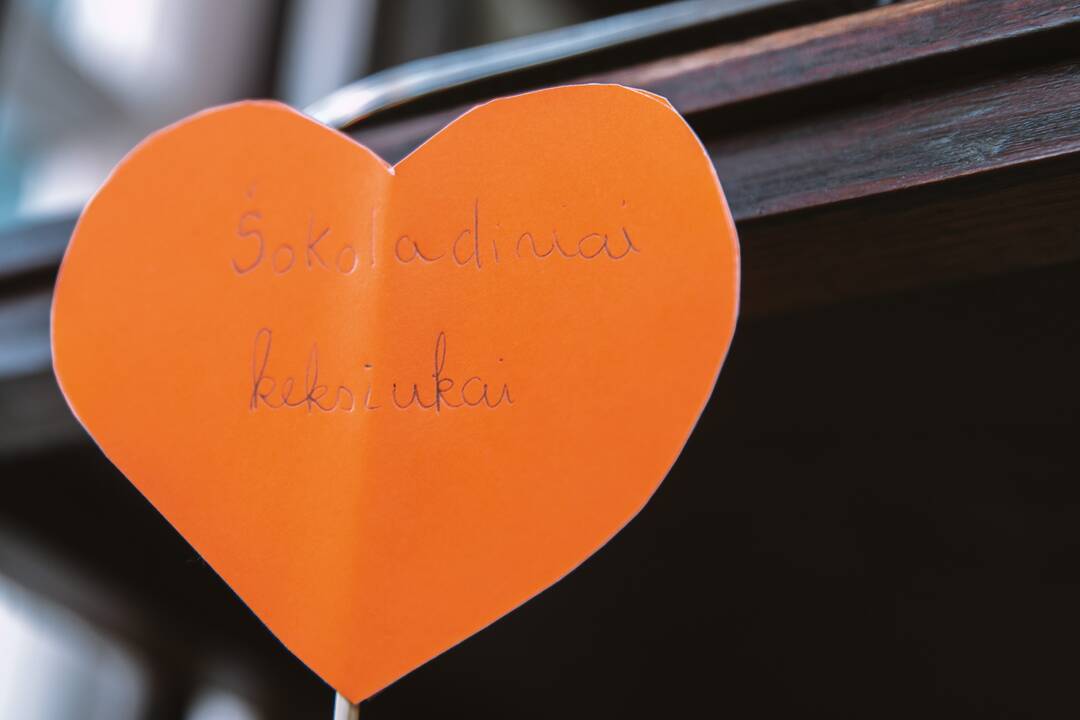 Šokoladiniai
keksiukai